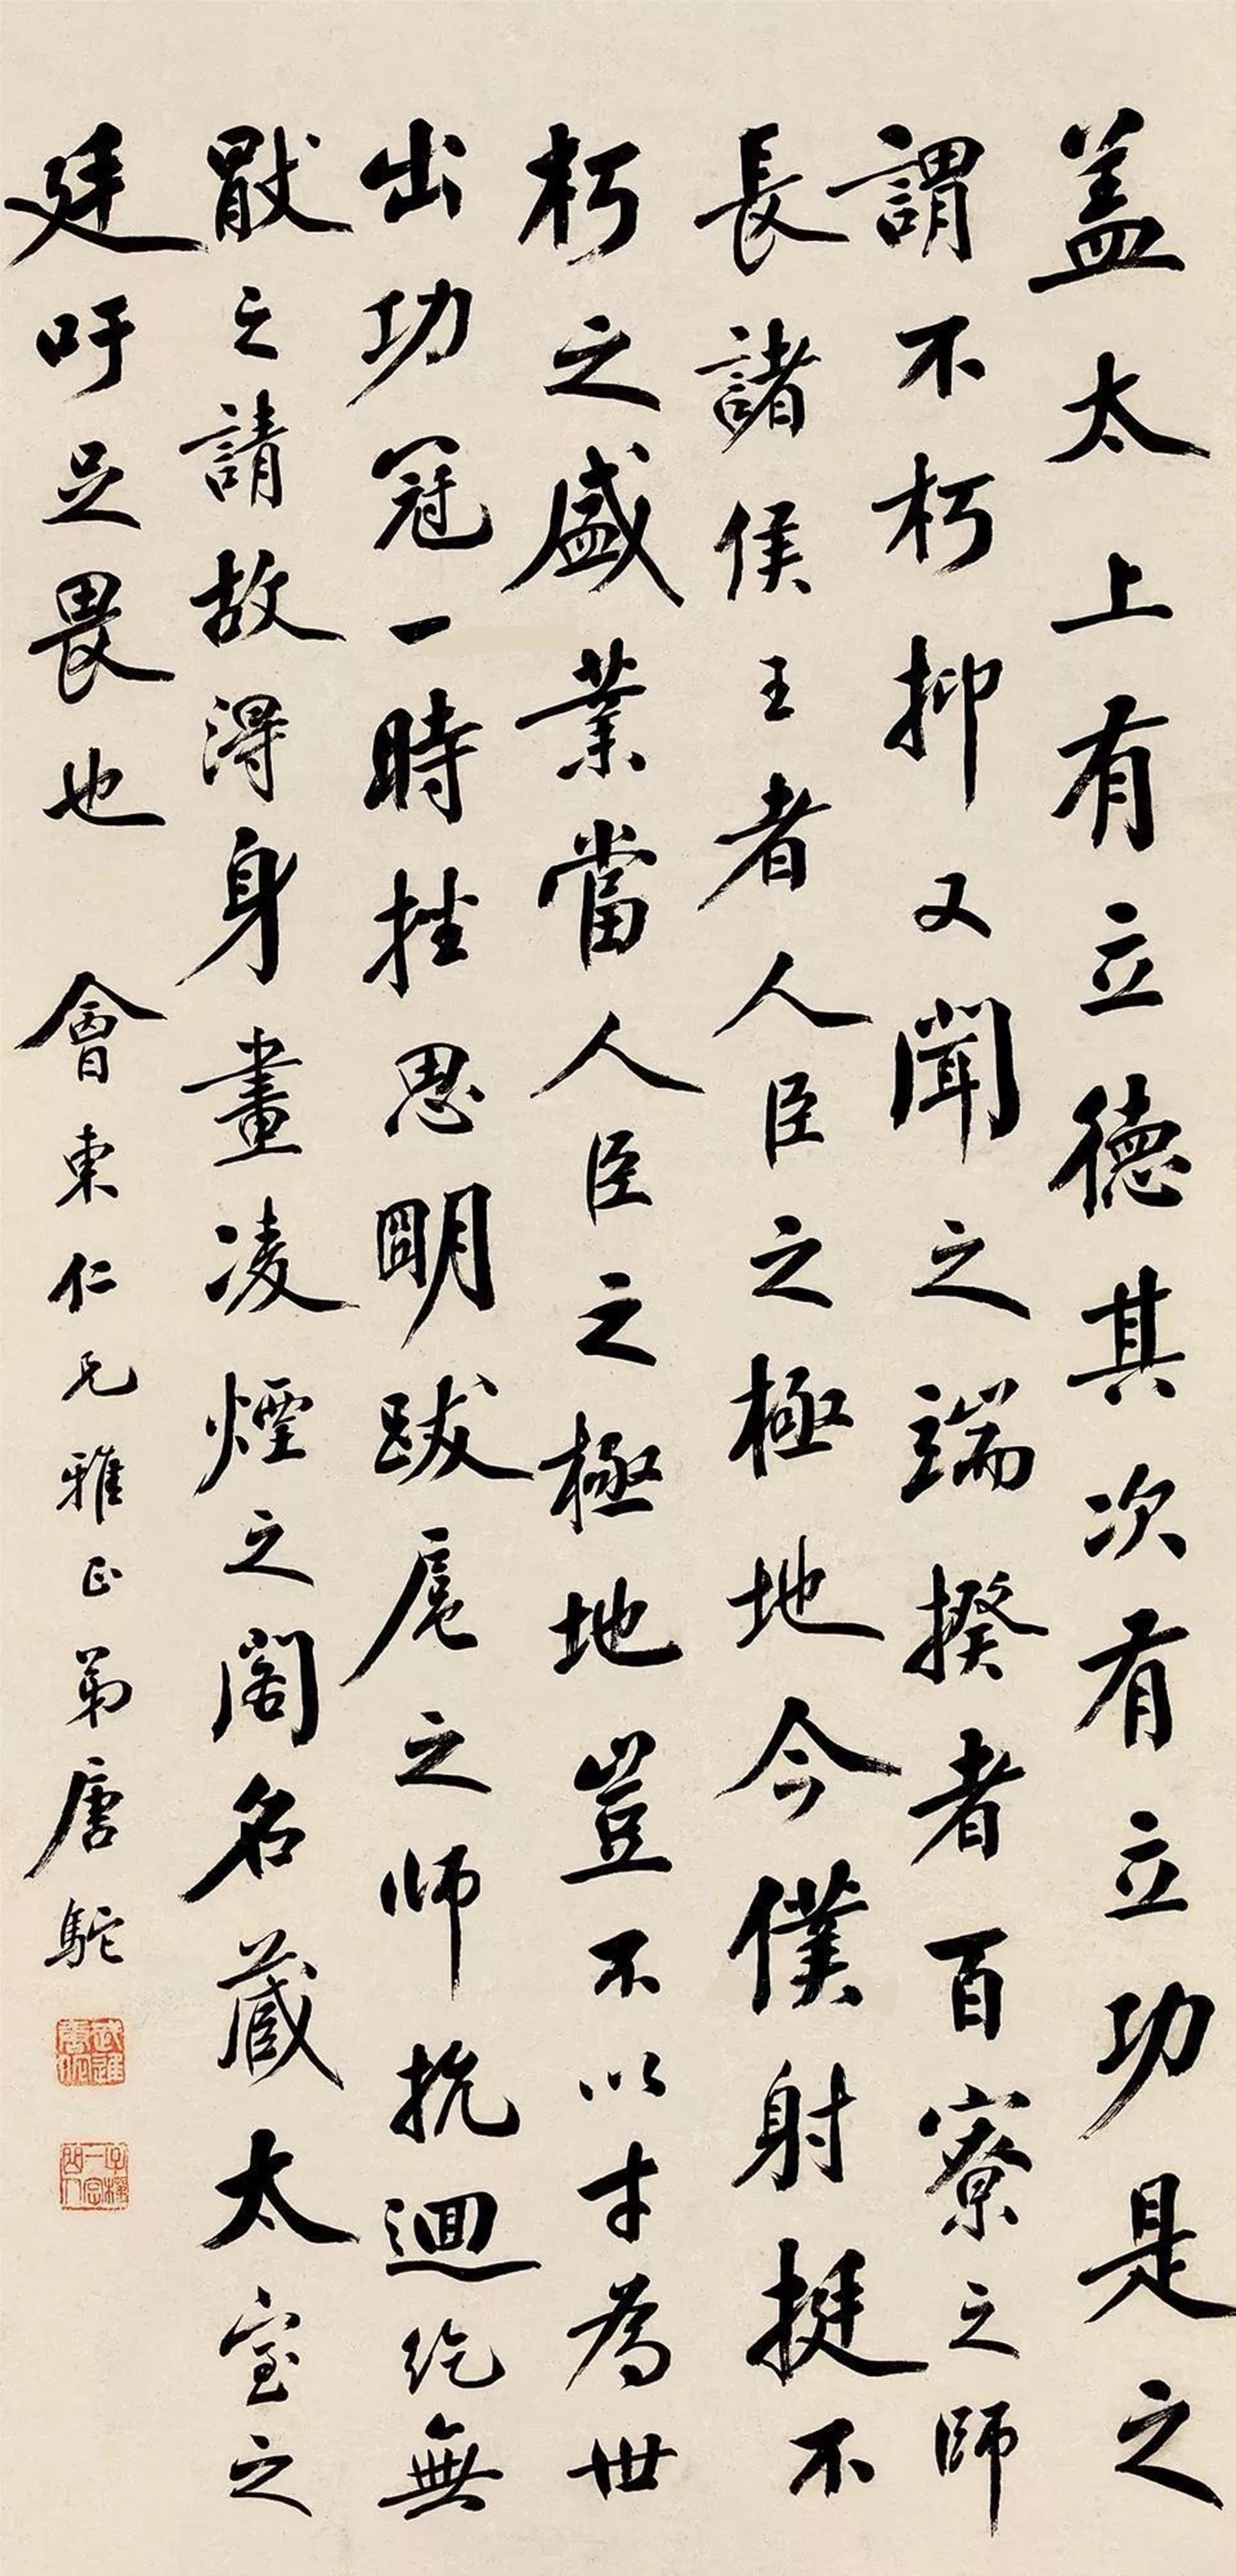 蓋太上有立德其次有立功是之
謂不朽抑又聞之端揆者百寮之師
長諸侯王者人臣之極地今僕射挺不
朽之盛業當人臣之極地豈不以才為世
出功冠一時挫思明跋扈之师抗迴紇無
猒之請故得身畫凌煙之閣名藏太室之
廷吁足畏也 會東仁兄雅正弟唐駝